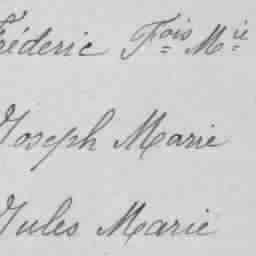 Fréderic Fois Mie
Joseph Marie
Jules Marie